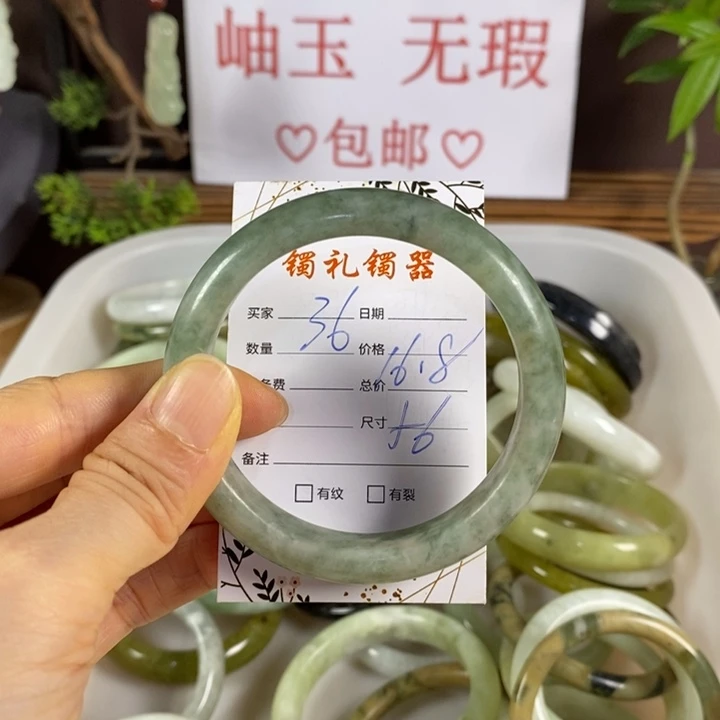 岫玉 无瑕
♡包邮♡
镯礼镯器
买家 36 日期
数量 价格 16.8
务费 总价
尺寸 56
备注
□有纹 □有裂